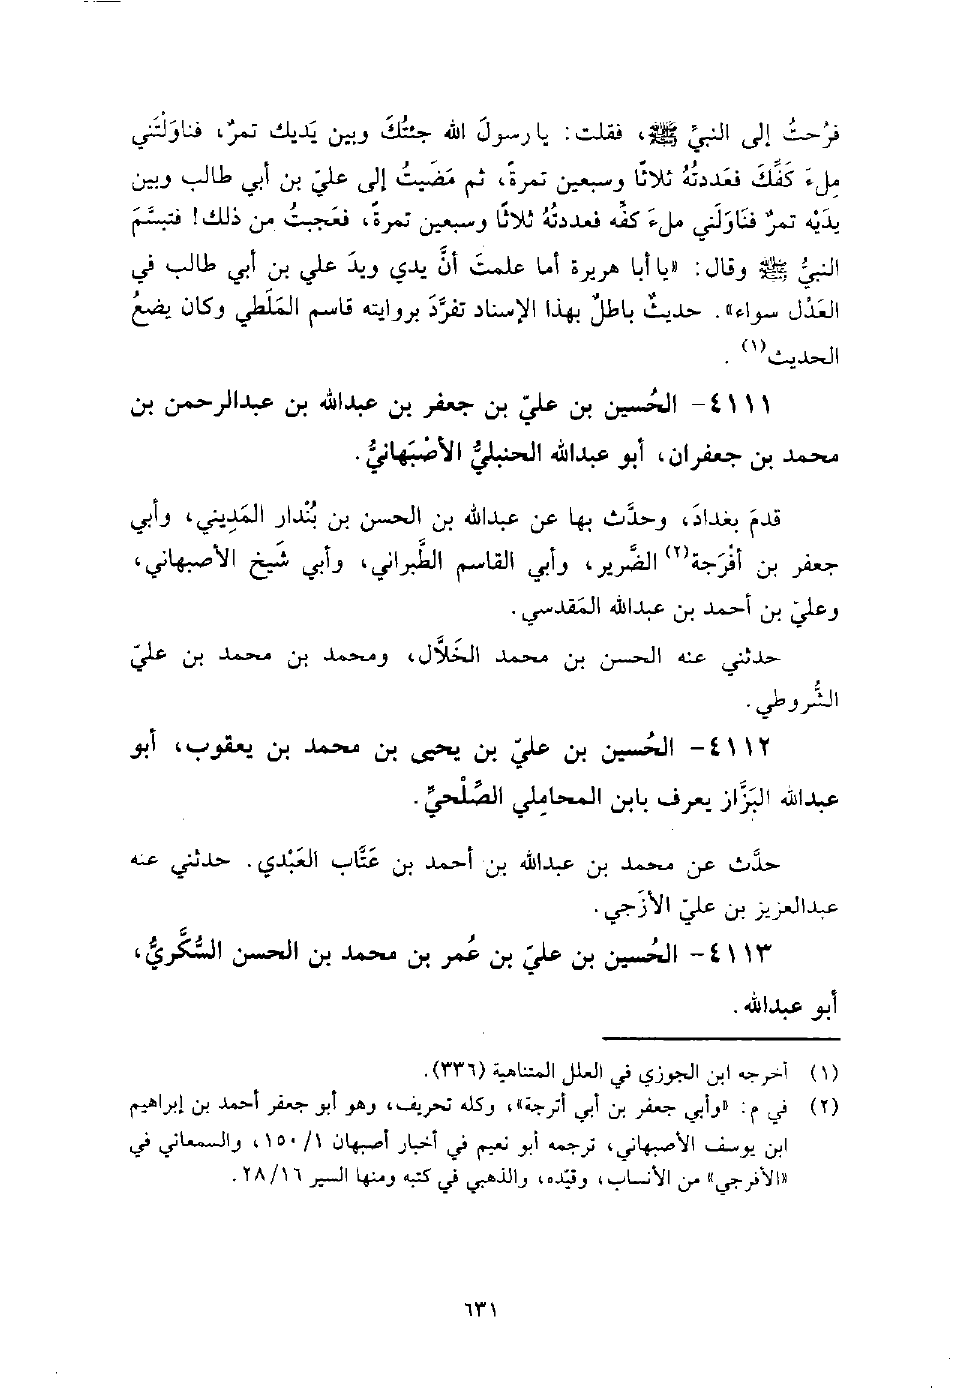 فرُحتُ إلى النبيِّ ﷺ، فقلت: يا رسولَ الله جئتُكَ وبين يَديك تمرٌ، فناوَلْتَني
مِلءَ كَفِّكَ فعَددتُهُ ثلاثًا وسبعين تمرةً، ثم مَضَيتُ إلى عليّ بن أبي طالب وبين
يدَيْه تمرٌ فنَاوَلَني ملءَ كفِّه فعددتُهُ ثلاثًا وسبعين تمرةً، فعَجبتُ من ذلك! فتبسَّمَ
النبيُّ ﷺ وقال: «يا أبا هريرة أما علمتَ أنَّ يدي ويدَ علي بن أبي طالب في
العَدْل سواء». حديثٌ باطلٌ بهذا الإسناد تفرَّدَ بروايته قاسم المَلَطي وكان يضعُ
الحديث(١).
٤١١١- الحُسين بن عليّ بن جعفر بن عبدالله بن عبدالرحمن بن
محمد بن جعفران، أبو عبدالله الحنبليُّ الأصْبَهانيُّ.
قدمَ بغدادَ، وحدَّث بها عن عبدالله بن الحسن بن بُنْدار المَديني، وأبي
جعفر بن أفْرَجة(٢) الضَّرير، وأبي القاسم الطَّبراني، وأبي شَيخ الأصبهاني،
وعليّ بن أحمد بن عبدالله المَقدسي.
حدثني عنه الحسن بن محمد الخَلَّال، ومحمد بن محمد بن عليّ
الشُّروطي.
٤١١٢- الحُسين بن عليّ بن يحيى بن محمد بن يعقوب، أبو
عبدالله البَزَّاز يعرف بابن المحامِلي الصِّلْحيِّ.
حدَّث عن محمد بن عبدالله بن أحمد بن عَتَّاب العَبْدي. حدثني عنه
عبدالعزيز بن عليّ الأزَجي.
٤١١٣- الحُسين بن عليّ بن عُمر بن محمد بن الحسن السُّكَّريُّ،
أبو عبدالله.
(١) أخرجه ابن الجوزي في العلل المتناهية (٣٣٦).
(٢) في م: «وأبي جعفر بن أبي أترجة»، وكله تحريف، وهو أبو جعفر أحمد بن إبراهيم
ابن يوسف الأصبهاني، ترجمه أبو نعيم في أخبار أصبهان ١/ ١٥٠، والسمعاني في
«الأفرجي» من الأنساب، وقيّده، والذهبي في كتبه ومنها السير ١٦/ ٢٨.
٦٣١